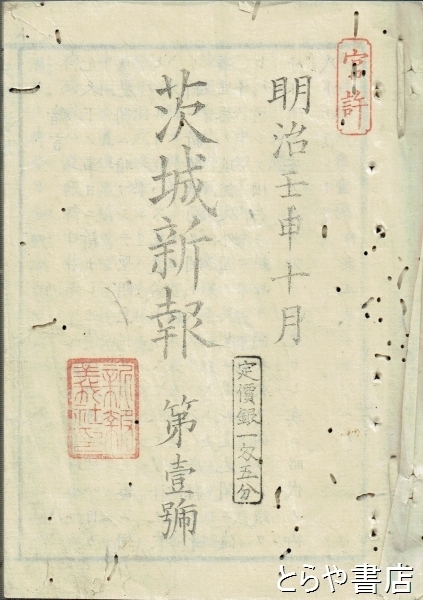 官許
明治壬申十月
茨城新報
第壹號
定價銀一匁五分
新報義社印
とらや書店